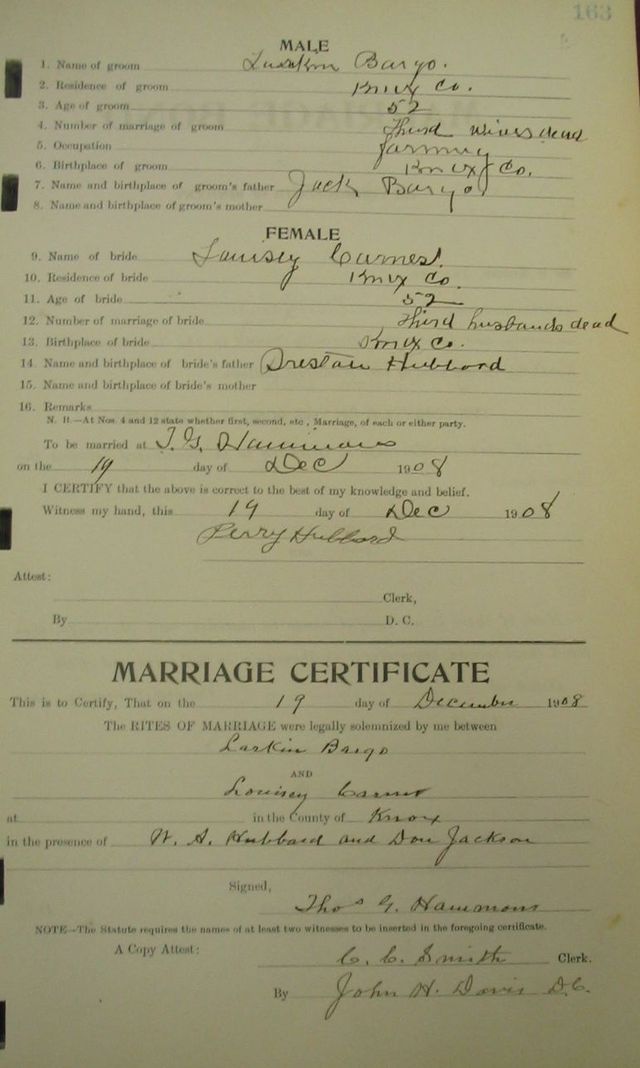 163
MALE
1. Name of groom Larkin Bargo.
2. Residence of groom Knox Co.
3. Age of groom 52
4. Number of marriage of groom Third wives dead
5. Occupation farming
6. Birthplace of groom Knox Co.
7. Name and birthplace of groom's father Jack Bargo.
8. Name and birthplace of groom's mother
FEMALE
9. Name of bride Louisey Carnes.
10. Residence of bride Knox Co.
11. Age of bride 52
12. Number of marriage of bride Third husbands dead
13. Birthplace of bride Knox Co.
14. Name and birthplace of bride's father Hubbard
15. Name and birthplace of bride's mother
16. Remarks
N. B.—At Nos. 4 and 12 state whether first, second, etc., Marriage, of each or either party.
To be married at T. G. Hammons
on the 19 day of Dec 1908
I CERTIFY that the above is correct to the best of my knowledge and belief.
Witness my hand, this 19 day of Dec 1908
Perry Hubbard
Attest:
Clerk,
By D. C.
MARRIAGE CERTIFICATE
This is to Certify, That on the 19 day of December 1908
The RITES OF MARRIAGE were legally solemnized by me between
Larkin Bargo
AND
Louisey Carnes
at in the County of Knox
in the presence of W. A. Hubbard and Don Jackson
Signed,
Thos G. Hammons
NOTE—The Statute requires the names of at least two witnesses to be inserted in the foregoing certificate.
A Copy Attest: C. C. Smith Clerk.
By John H. Davis D.C.